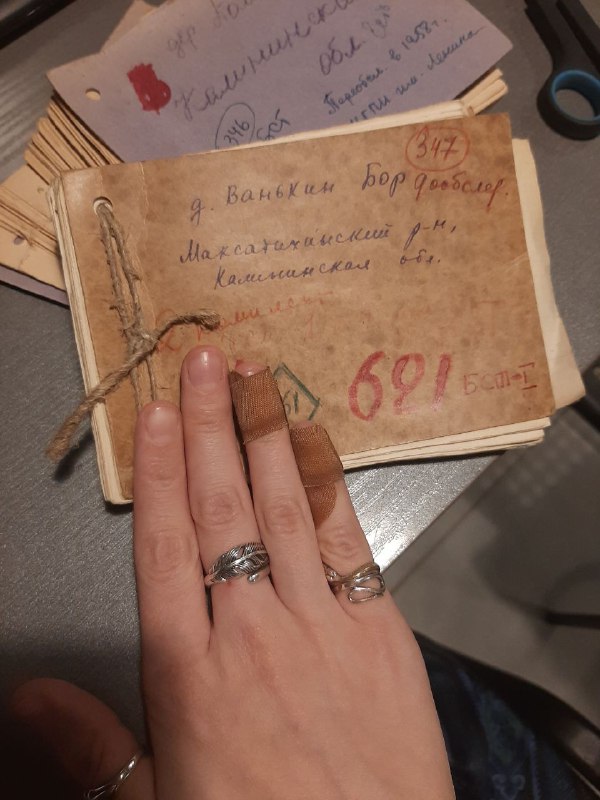 дер.
Калининской
обл.
346
Переобсл. в 1958г.
им. Ленина
347
д. Ванькин Бор дообслер.
Максатихинский р-н,
Калининская обл.
61
621 БСТ-I